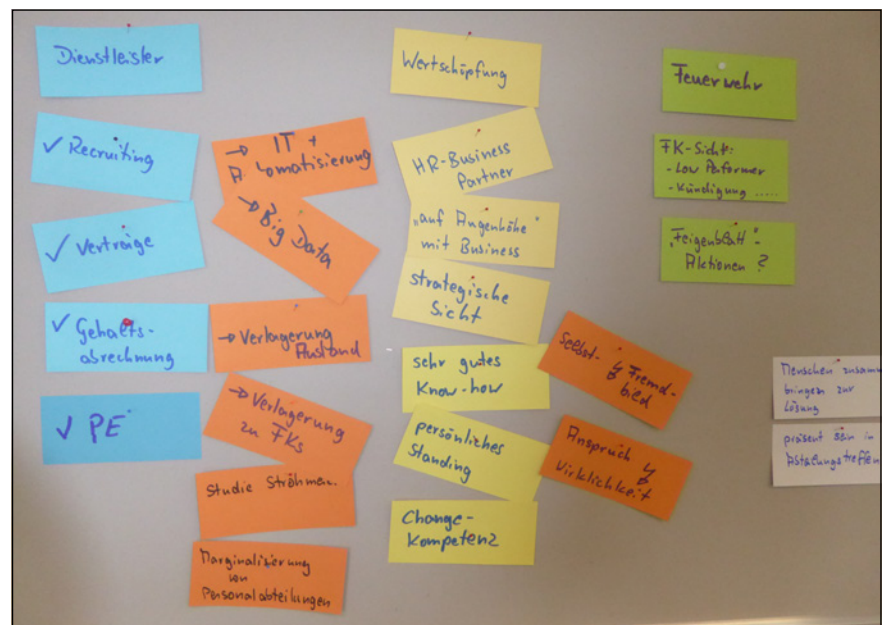 Dienstleister
✓ Recruiting
✓ Verträge
✓ Gehalts-
abrechnung
✓ PE
→ IT +
A tomatisierung
→ Big Data
→ Verlagerung
Ausland
→ Verlagerung
zu FKs
Studie Ströhmer.
Marginalisierung
von
Personalabteilungen
Wertschöpfung
HR-Business
Partner
"auf Augenhöhe"
mit Business
strategische
Sicht
sehr gutes
Know-how
persönliches
Standing
Change-
Kompetenz
Selbst- ↯ Fremd-
bild
Anspruch ↯
Wirklichkeit
Feuerwehr
FK-Sicht:
- Low Performer
- Kündigung .....
"Feigenblatt"-
Aktionen ?
Menschen zusamm
bringen zur
Lösung
präsent sein in
Abteilungstreffen